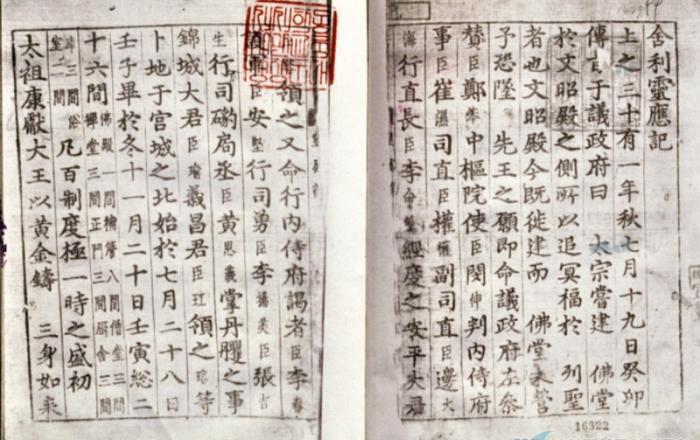 舍利靈應記
上之三十有一年秋七月十九日癸卯
傳旨于議政府曰 太宗嘗建 佛堂
於文昭殿之側所以追冥福於 列聖
者也文昭殿今既徙建而 佛堂未營
予恐墜 先王之願即命議政府左叅
贊臣鄭苯中樞院使臣閔伸判內侍府
事臣崔濕司直臣權副司直臣邊大
海行直長臣李命敏經度之安平大君
領之又命行內侍府謁者臣李春
臣安堅行司勇臣李揚美臣張吉
生行司磟局丞臣黃思義掌丹雘之事
錦城大君臣瑜義昌君臣玒領之瑢等
卜地于宮城之北始於七月二十八日
壬子畢於冬十一月二十日壬寅総二
十六間佛殿一間補簷八間僧堂三間禪堂三間正門三間厨舍三間
庫三間浴室一間凡百制度極一時之盛初
太祖康獻大王以黃金鑄 三身如来
16322